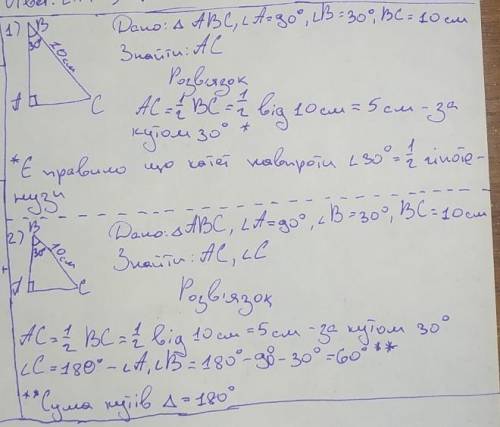 1) B
30°
10см
A
C
Дано: △ ABC, ∠A=90°, ∠B=30°, BC=10см
Знайти: AC
Розвязок
AC=1/2 BC=1/2 від 10см=5см-за
кутом 30° *
*Є правило що катет навпроти ∠30°=1/2 гіпоте-
нузи
2) B
30°
10см
A
C
Дано: △ABC, ∠A=90°, ∠B=30°, BC=10см
Знайти: AC, ∠C
Розв'язок
AC=1/2 BC=1/2 від 10см=5см-за кутом 30°
∠C=180°-∠A,∠B=180°-90°-30°=60°**
**Сума кутів △=180°